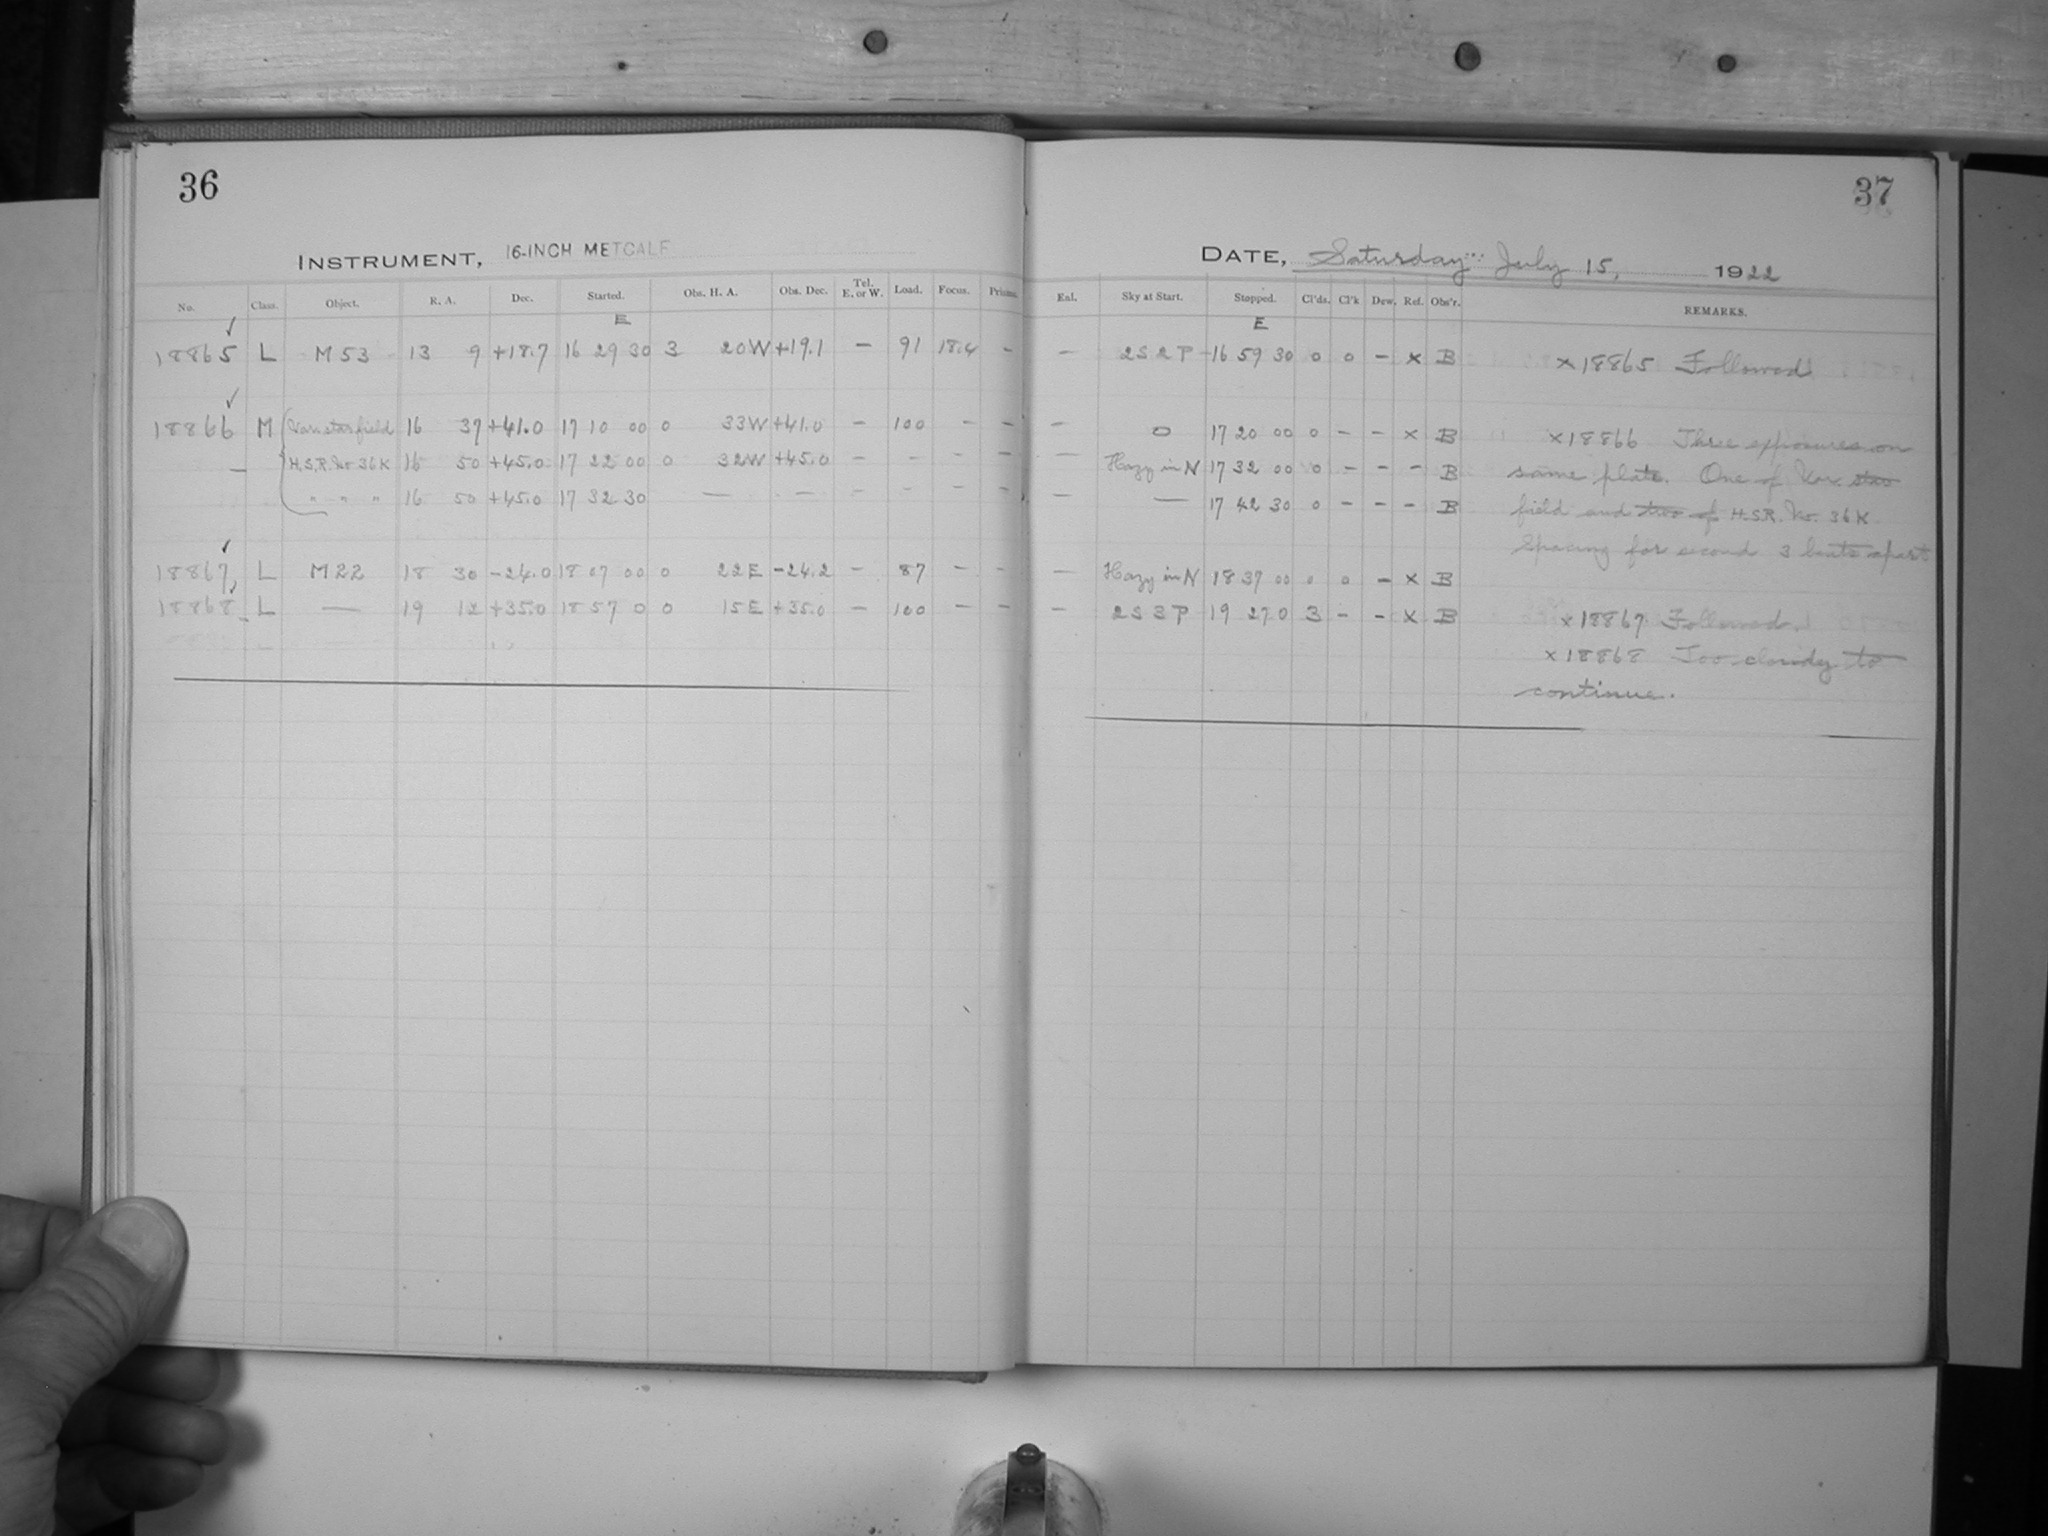 36
INSTRUMENT, 16-INCH METCALF
No. Class. Object. R. A. Dec. Started. Obs. H. A. Obs. Dec. Tel. E. or W. Load. Focus. Prisms.
E
18865 L M 53 13 9 +18.7 16 29 30 3 20W +19.1 – 91 18.4 –
18866 M Var. star field 16 37 +41.0 17 10 00 0 33W +41.0 – 100 – –
– H.S.R. No. 36K 16 50 +45.0 17 22 00 0 32W +45.0 – – – –
" " " 16 50 +45.0 17 32 30 — – – – – –
18867 L M 22 18 30 -24.0 18 07 00 0 22E -24.2 – 87 – –
18868 L — 19 12 +35.0 18 57 0 0 15E +35.0 – 100 – –
37
DATE, Saturday July 15, 1922
Eal. Sky at Start. Stopped. Cl'ds. Cl'k Dew. Ref. Obs'r. REMARKS.
E
– 2S 2P 16 59 30 0 0 – x B x 18865 Followed
– 0 17 20 00 0 – – x B x 18866 Three exposures on
– Hazy in N 17 32 00 0 – – – B same plate. One of Var. star
– — 17 42 30 0 – – – B field and two of H.S.R. No. 36K
Spacing for second 3 beats apart
– Hazy in N 18 37 00 0 0 – x B
– 2S 3P 19 27 0 3 – – x B x 18867 Followed.
x 18868 Too cloudy to
continue.